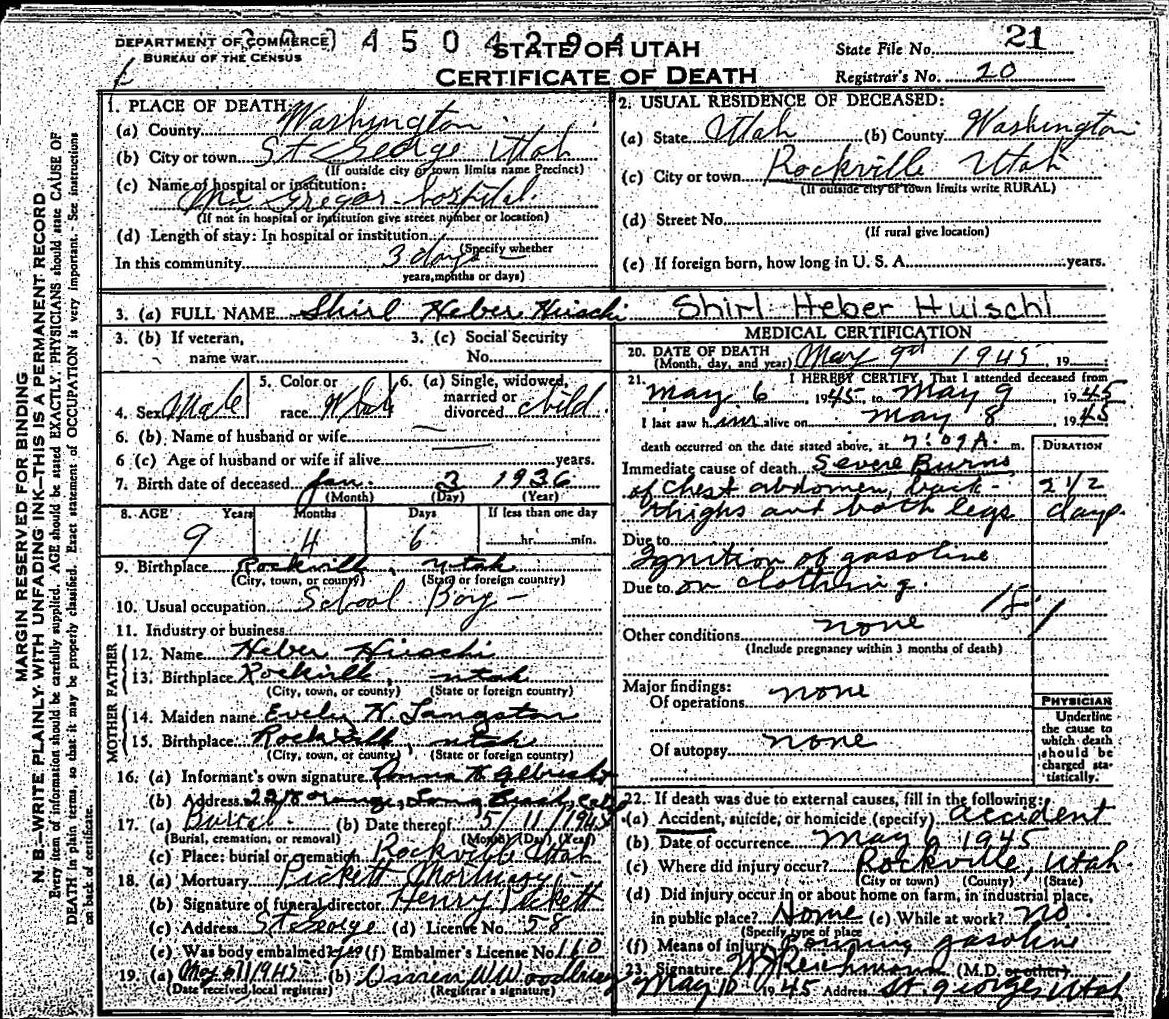 DEPARTMENT OF COMMERCE
BUREAU OF THE CENSUS
STATE OF UTAH
CERTIFICATE OF DEATH
State File No. 21
Registrar's No. 20
MARGIN RESERVED FOR BINDING
N. B.—WRITE PLAINLY WITH UNFADING INK—THIS IS A PERMANENT RECORD
Every item of information should be carefully supplied. AGE should be stated EXACTLY, PHYSICIANS should state CAUSE OF
DEATH in plain terms, so that it may be properly classified. Exact statement of OCCUPATION is very important. - See instructions
on back of certificate.
1. PLACE OF DEATH:
(a) County Washington
(b) City or town St George Utah
(If outside city or town limits name Precinct)
(c) Name of hospital or institution:
Mc Gregor hospital
(If not in hospital or institution give street number or location)
(d) Length of stay: In hospital or institution
(Specify whether
In this community 3 days -
years, months or days)
2. USUAL RESIDENCE OF DECEASED:
(a) State Utah (b) County Washington
(c) City or town Rockville Utah
(If outside city or town limits write RURAL)
(d) Street No.
(If rural give location)
(e) If foreign born, how long in U. S. A. years.
3. (a) FULL NAME Shirl Heber Hirschi Shirl Heber Huischl
3. (b) If veteran,
name war
3. (c) Social Security
No.
4. Sex Male
5. Color or
race White
6. (a) Single, widowed,
married or
divorced child
6. (b) Name of husband or wife
6 (c) Age of husband or wife if alive years.
7. Birth date of deceased Jan. 3 1936
(Month) (Day) (Year)
8. AGE Years Months Days If less than one day
9 4 6 hr. min.
9. Birthplace Rockville, Utah
(City, town, or county) (State or foreign country)
10. Usual occupation School Boy -
11. Industry or business
FATHER
12. Name Heber Hirschi
13. Birthplace Rockville, Utah
(City, town, or county) (State or foreign country)
MOTHER
14. Maiden name Evelyn H. Langston
15. Birthplace Rockville, Utah
(City, town, or county) (State or foreign country)
16. (a) Informant's own signature
(b) Address Orange, Long Beach, Calif
17. (a) Burial (b) Date thereof 5/11/1945
(Burial, cremation, or removal) (Month) (Day) (Year)
(c) Place: burial or cremation Rockville Utah
18. (a) Mortuary Pickett Mortuary
(b) Signature of funeral director Henry Pickett
(c) Address St George (d) License No. 58
(e) Was body embalmed yes (f) Embalmer's License No. 160
19. (a) May 1945 (b)
(Date received local registrar) (Registrar's signature)
MEDICAL CERTIFICATION
20. DATE OF DEATH
(Month, day, and year) May 9th 1945, 19
21. I HEREBY CERTIFY, That I attended deceased from
May 6, 1945, to May 9, 1945
I last saw him alive on May 8, 1945
death occurred on the date stated above, at 7:07 A. m.
DURATION
Immediate cause of death Severe Burns
of chest abdomen, back - 2 1/2
thighs and both legs days.
Due to
Ignition of gasoline
Due to on clothing.
Other conditions none
(Include pregnancy within 3 months of death)
Major findings:
Of operations none
Of autopsy none
PHYSICIAN
Underline
the cause to
which death
should be
charged sta-
tistically.
22. If death was due to external causes, fill in the following:
(a) Accident, suicide, or homicide (specify) accident
(b) Date of occurrence May 6 1945
(c) Where did injury occur? Rockville, Utah
(City or town) (County) (State)
(d) Did injury occur in or about home on farm, in industrial place,
in public place? Home (e) While at work? no.
(Specify type of place
(f) Means of injury Burning gasoline
23. Signature W J Reichmann (M.D. or other)
May 10 1945 Address St George, Utah